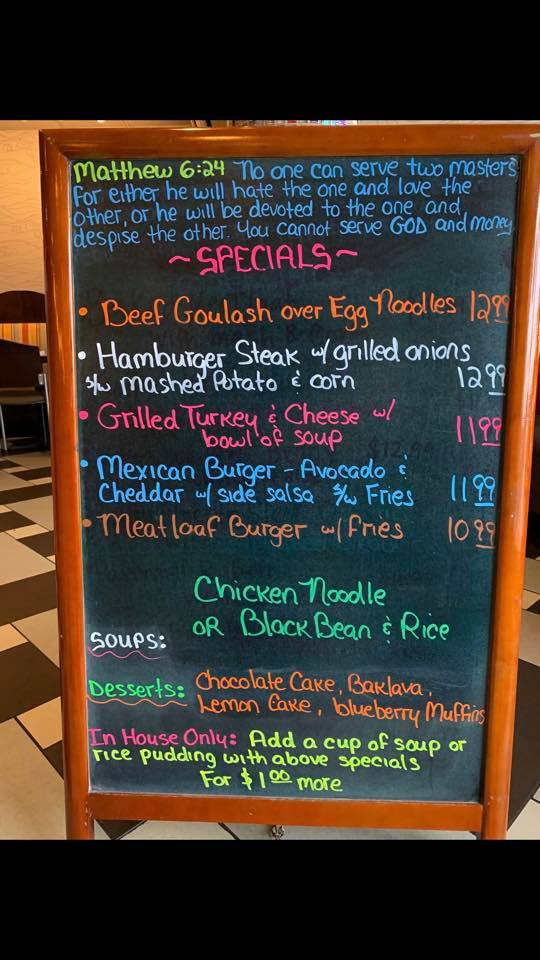 Matthew 6:24 No one can serve two masters
for either he will hate the one and love the
other, or he will be devoted to the one and
despise the other. You cannot serve GOD and money
~SPECIALS~
• Beef Goulash over Egg Noodles 12.99
• Hamburger Steak w/ grilled onions
s/w mashed Potato & corn 12.99
• Grilled Turkey & Cheese w/
bowl of soup 11.99
• Mexican Burger - Avocado &
Cheddar w/ side salsa s/w Fries 11.99
• Meatloaf Burger w/ Fries 10.99
Chicken Noodle
OR Black Bean & Rice
SOUPS:
Desserts: Chocolate Cake, Baklava,
Lemon Cake, blueberry Muffins
In House Only: Add a cup of soup or
rice pudding with above specials
For $1.00 more